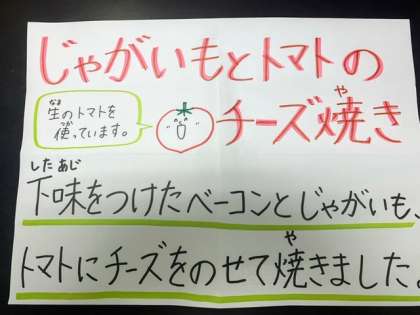 じゃがいもとトマトの
チーズ焼き
や
生のトマトを
なま
使っています。
つか
したあじ
下味をつけたベーコンとじゃがいも、
や
トマトにチーズをのせて焼きました。